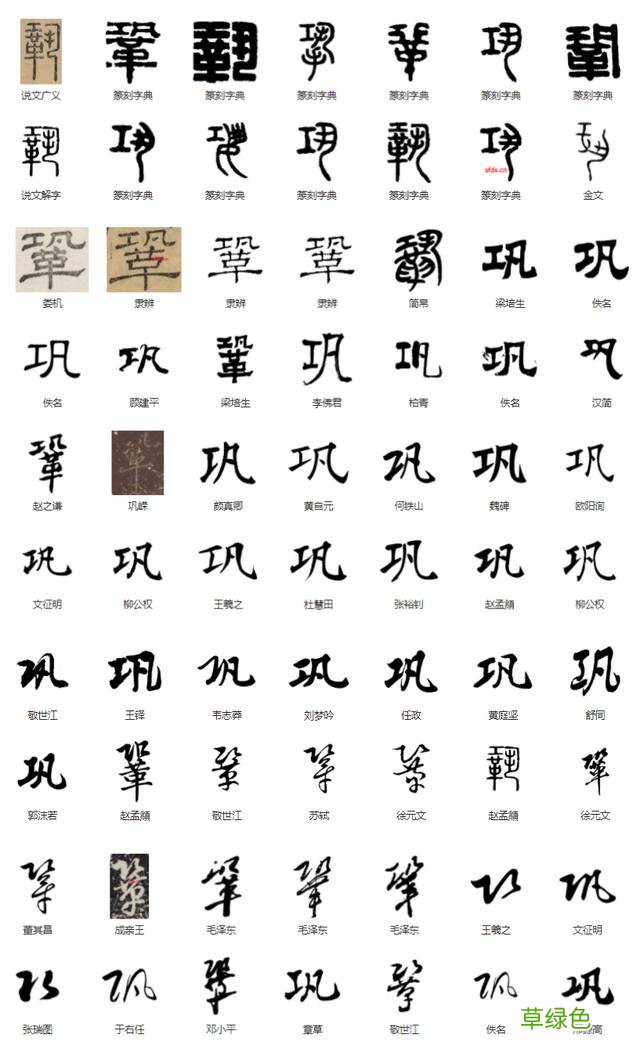 鞏 鞏 鞏 鞏 巩 鞏
说文广义 篆刻字典 篆刻字典 篆刻字典 篆刻字典 篆刻字典 篆刻字典
鞏 巩 巩 鞏 巩 巩
sfds.cn
说文解字 篆刻字典 篆刻字典 篆刻字典 篆刻字典 篆刻字典 金文
鞏 鞏 鞏 鞏 鞏 巩 巩
娄机 隶辨 隶辨 隶辨 简帛 梁培生 佚名
巩 巩 鞏 巩 巩 巩 巩
佚名 顾建平 梁培生 李佛君 柏青 佚名 汉简
鞏 鞏 巩 巩 巩 巩 巩
赵之谦 巩嵘 颜真卿 黄自元 何轶山 魏碑 欧阳询
巩 巩 巩 巩 巩 巩 巩
文征明 柳公权 王羲之 杜慧田 张裕钊 赵孟頫 柳公权
巩 巩 巩 巩 巩 巩 巩
敬世江 王铎 韦志莽 刘梦吟 任政 黄庭坚 舒同
巩 鞏 鞏 鞏 鞏 鞏 鞏
郭沫若 赵孟頫 敬世江 苏轼 徐元文 赵孟頫 徐元文
鞏 鞏 鞏 鞏 鞏 巩 巩
董其昌 成亲王 毛泽东 毛泽东 毛泽东 王羲之 文征明
巩 巩 鞏 巩 鞏 巩 巩
张瑞图 于右任 邓小平 章草 敬世江 佚名
草绿色